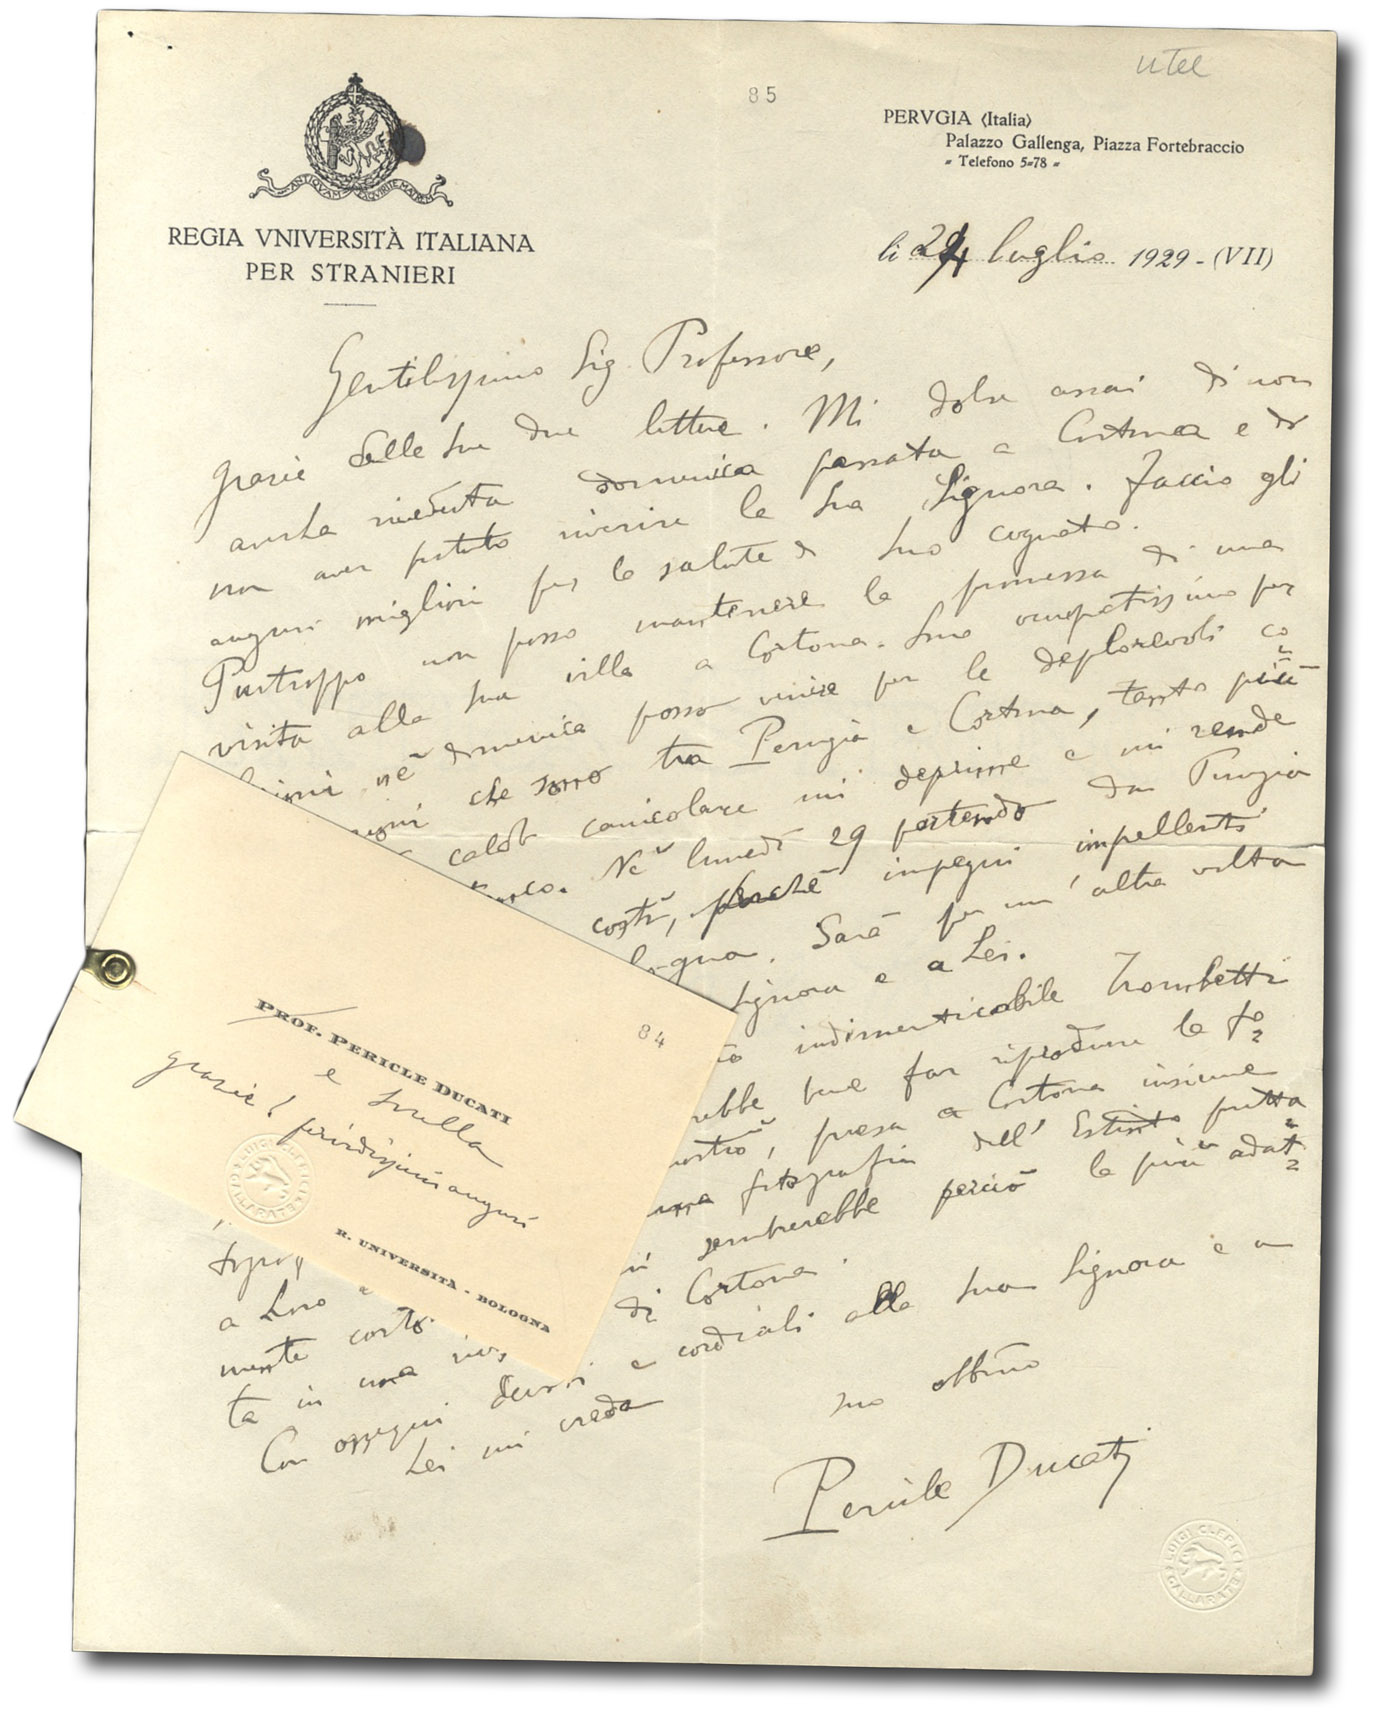 utel
85
ANTIQVAM EXQVIRITE MATREM
REGIA VNIVERSITÀ ITALIANA
PER STRANIERI
PERVGIA (Italia)
Palazzo Gallenga, Piazza Fortebraccio
Telefono 5-78
li 24 luglio 1929 - (VII)
Gentilissimo Sig. Professore,
grazie delle sue due lettere. Mi dolse assai di non
averla riveduta domenica passata a Cortona e di
non aver potuto riverire la sua Signora. Faccio gli
auguri migliori per la salute di suo cognato.
Purtroppo non posso mantenere la promessa di una
visita alla sua villa a Cortona. Sono occupatissimo per
nè domenica posso venire per le deplorevoli co
che sono tra Perugia e Cortona, tanto più
calor canicolare mi deprime e mi rende
Nè lunedì 29 partendo da Perugia
costì, perchè impegni impellenti
Sarà per un'altra volta
Signora e a Lei.
indimenticabile Trombetti
far riprodurre la fo
presa a Cortona insieme
fotografia dell'Estinto fatta
sembrerebbe perciò la più adat
a Loro
mente
di Cortona.
ta in una
Con ossequi devoti e cordiali alla sua Signora e a
Lei mi creda
suo obbmo
Pericle Ducati
84
PROF. PERICLE DUCATI
e sorella
grazie! auguri
R. UNIVERSITÀ - BOLOGNA
LUIGI CLERICI GALLARATE
LUIGI CLERICI GALLARATE